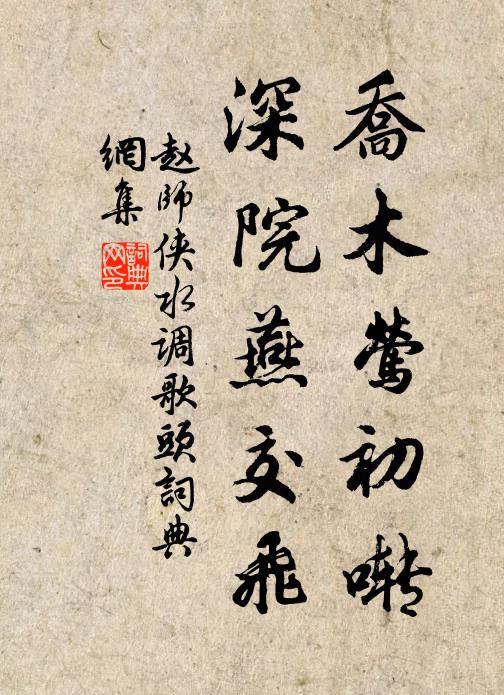 喬木鶯初囀
深院燕交飛
赵師侠水调歌頭詞典
網集
詞典
网印